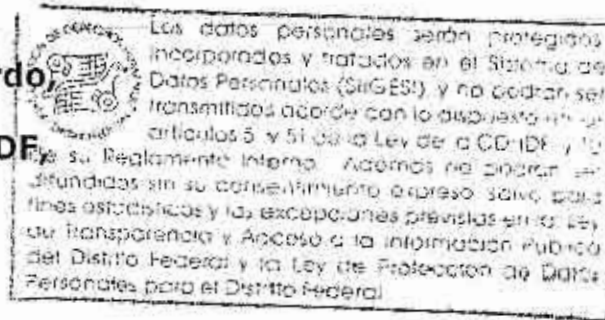 Los datos personales serán protegidos
incorporados y tratados en el Sistema de
rdo,
Datos Personales (SIIGESI), y no podrán ser
transmitidos acorde con lo dispuesto
artículos 5 y 51 de la Ley de la CDHDF y
DF
de su Reglamento Interno. Además no podrán ser
difundidos sin su consentimiento expreso salvo para
fines estadísticos y las excepciones previstas en la Ley
de Transparencia y Acceso a la Información Pública
del Distrito Federal y la Ley de Protección de Datos
Personales para el Distrito Federal